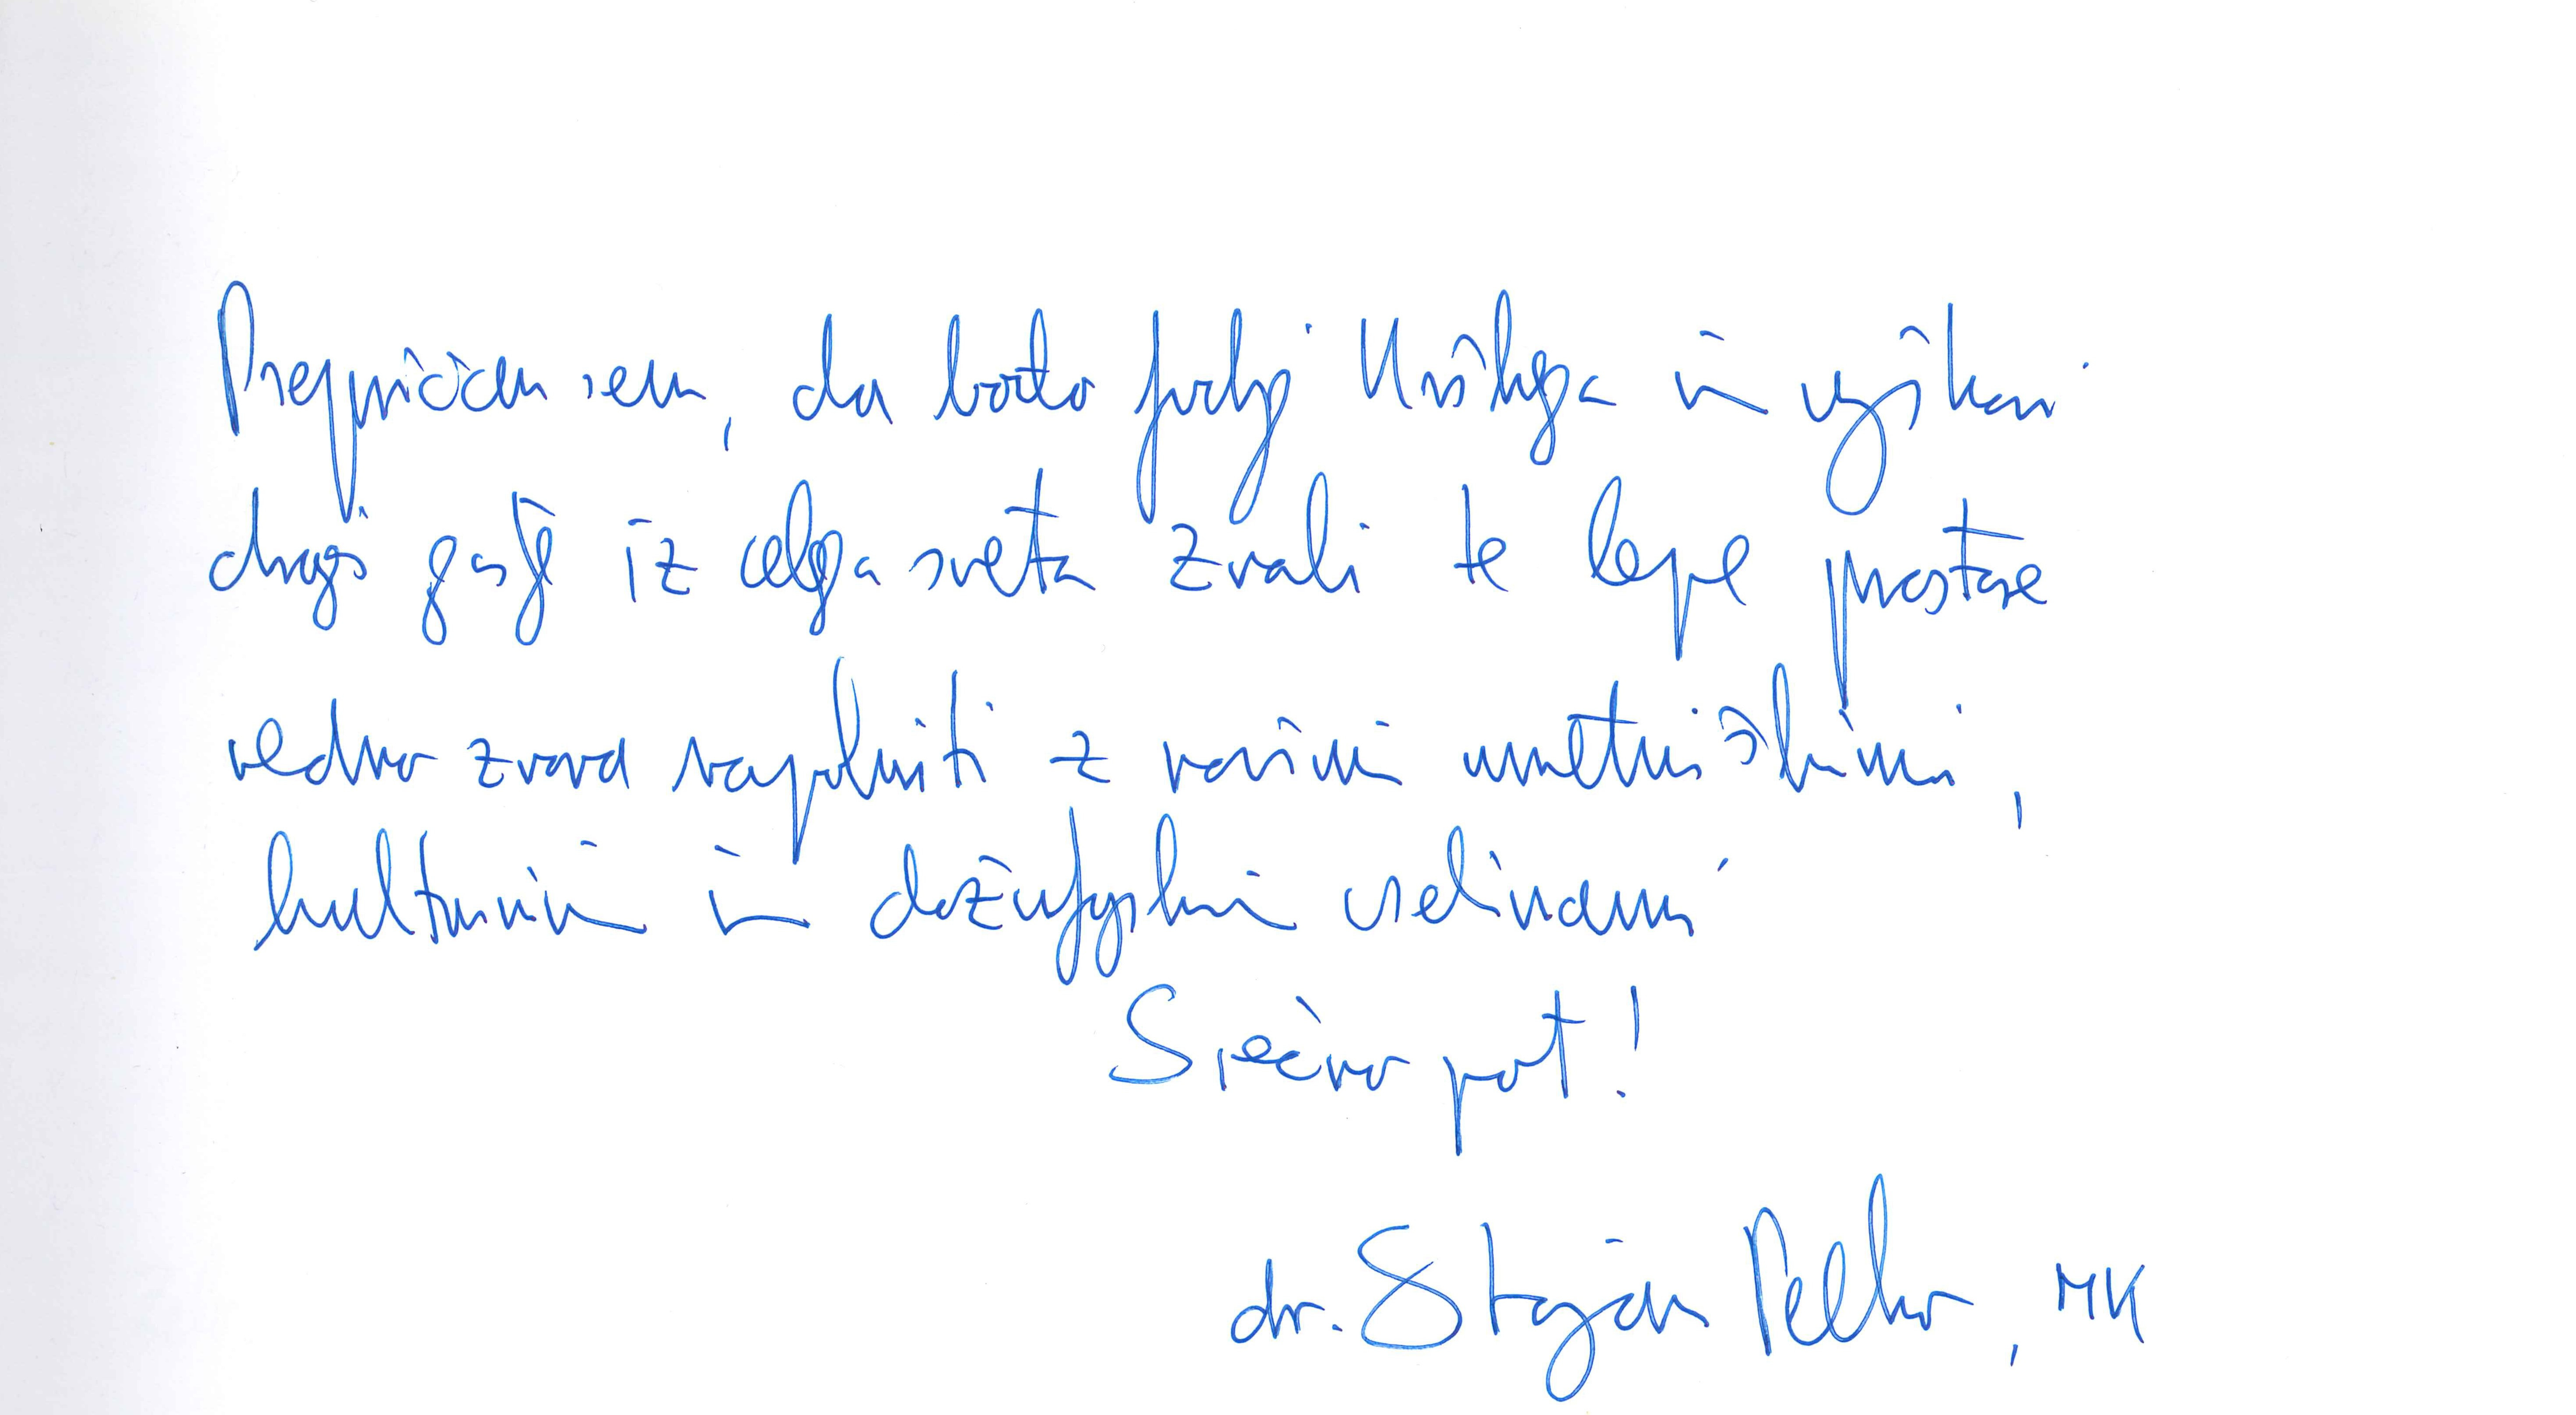 Prepričan sem, da boste poleg Unškega in vaškem
drugi gostje iz celega sveta znali te lepe prostore
vedno znova napolniti z vašimi umetniškimi,
kulturnimi in doživljajskimi vsebinami
Srečno pot!
dr. Stojan Pelko, MK